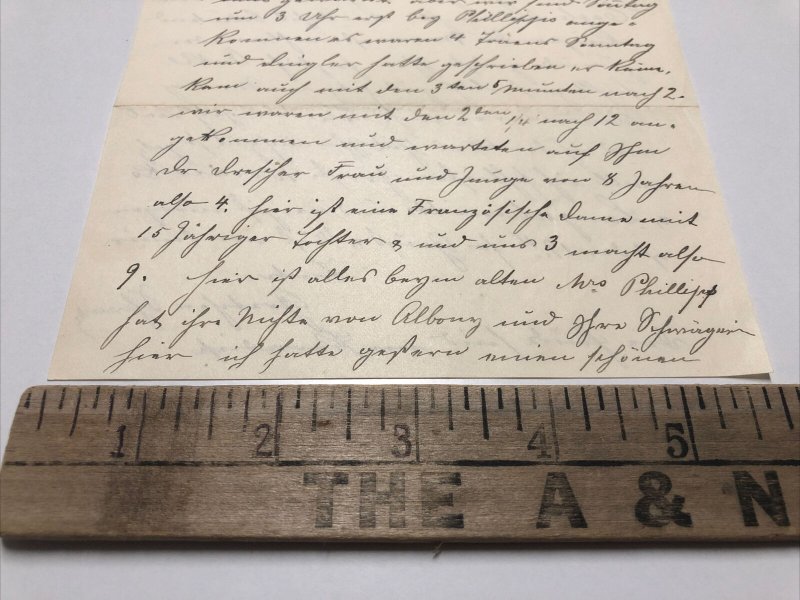 aber wir sind Sontag
um 3 Uhr erst bey Phillipps ange
kommen es waren 4 Trains Sonntag
und hatte geschrieben er käme,
kam auch mit den 3ten 5 Minuten nach 2.
wir waren mit den 2ten 1/4 nach 12 an-
gekommen und warteten auf Ihn
Dr Drescher Frau und Junge von 8 Jahren
also 4. hier ist eine Französische Dame mit
15 Jähriger Tochter & und uns 3 macht also
9. hier ist alles beym alten Mrs Phillipps
hat ihre Nichte von Albony und Ihre Schwägerin
hier ich hatte gestern einen schönen
1 2 3 4 5
THE A & N